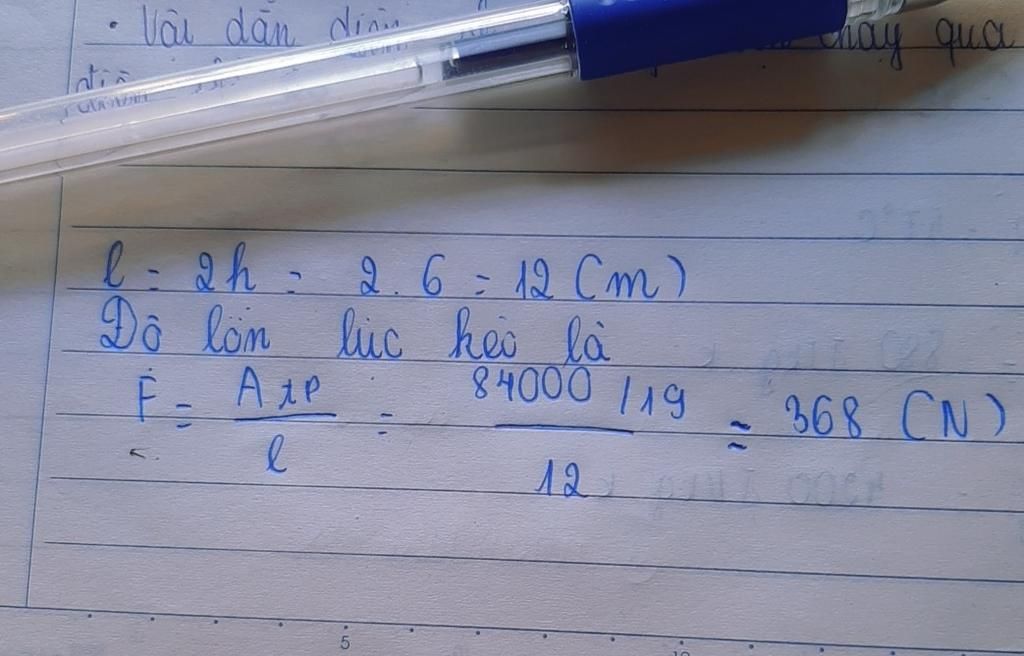 • Vâi dẫn chạy qua
l = 2h = 2.6 = 12 (m)
Độ lớn lực kéo là
F = Atp / l = 84000 / 19 / 12 ≈ 368 (N)
5
10